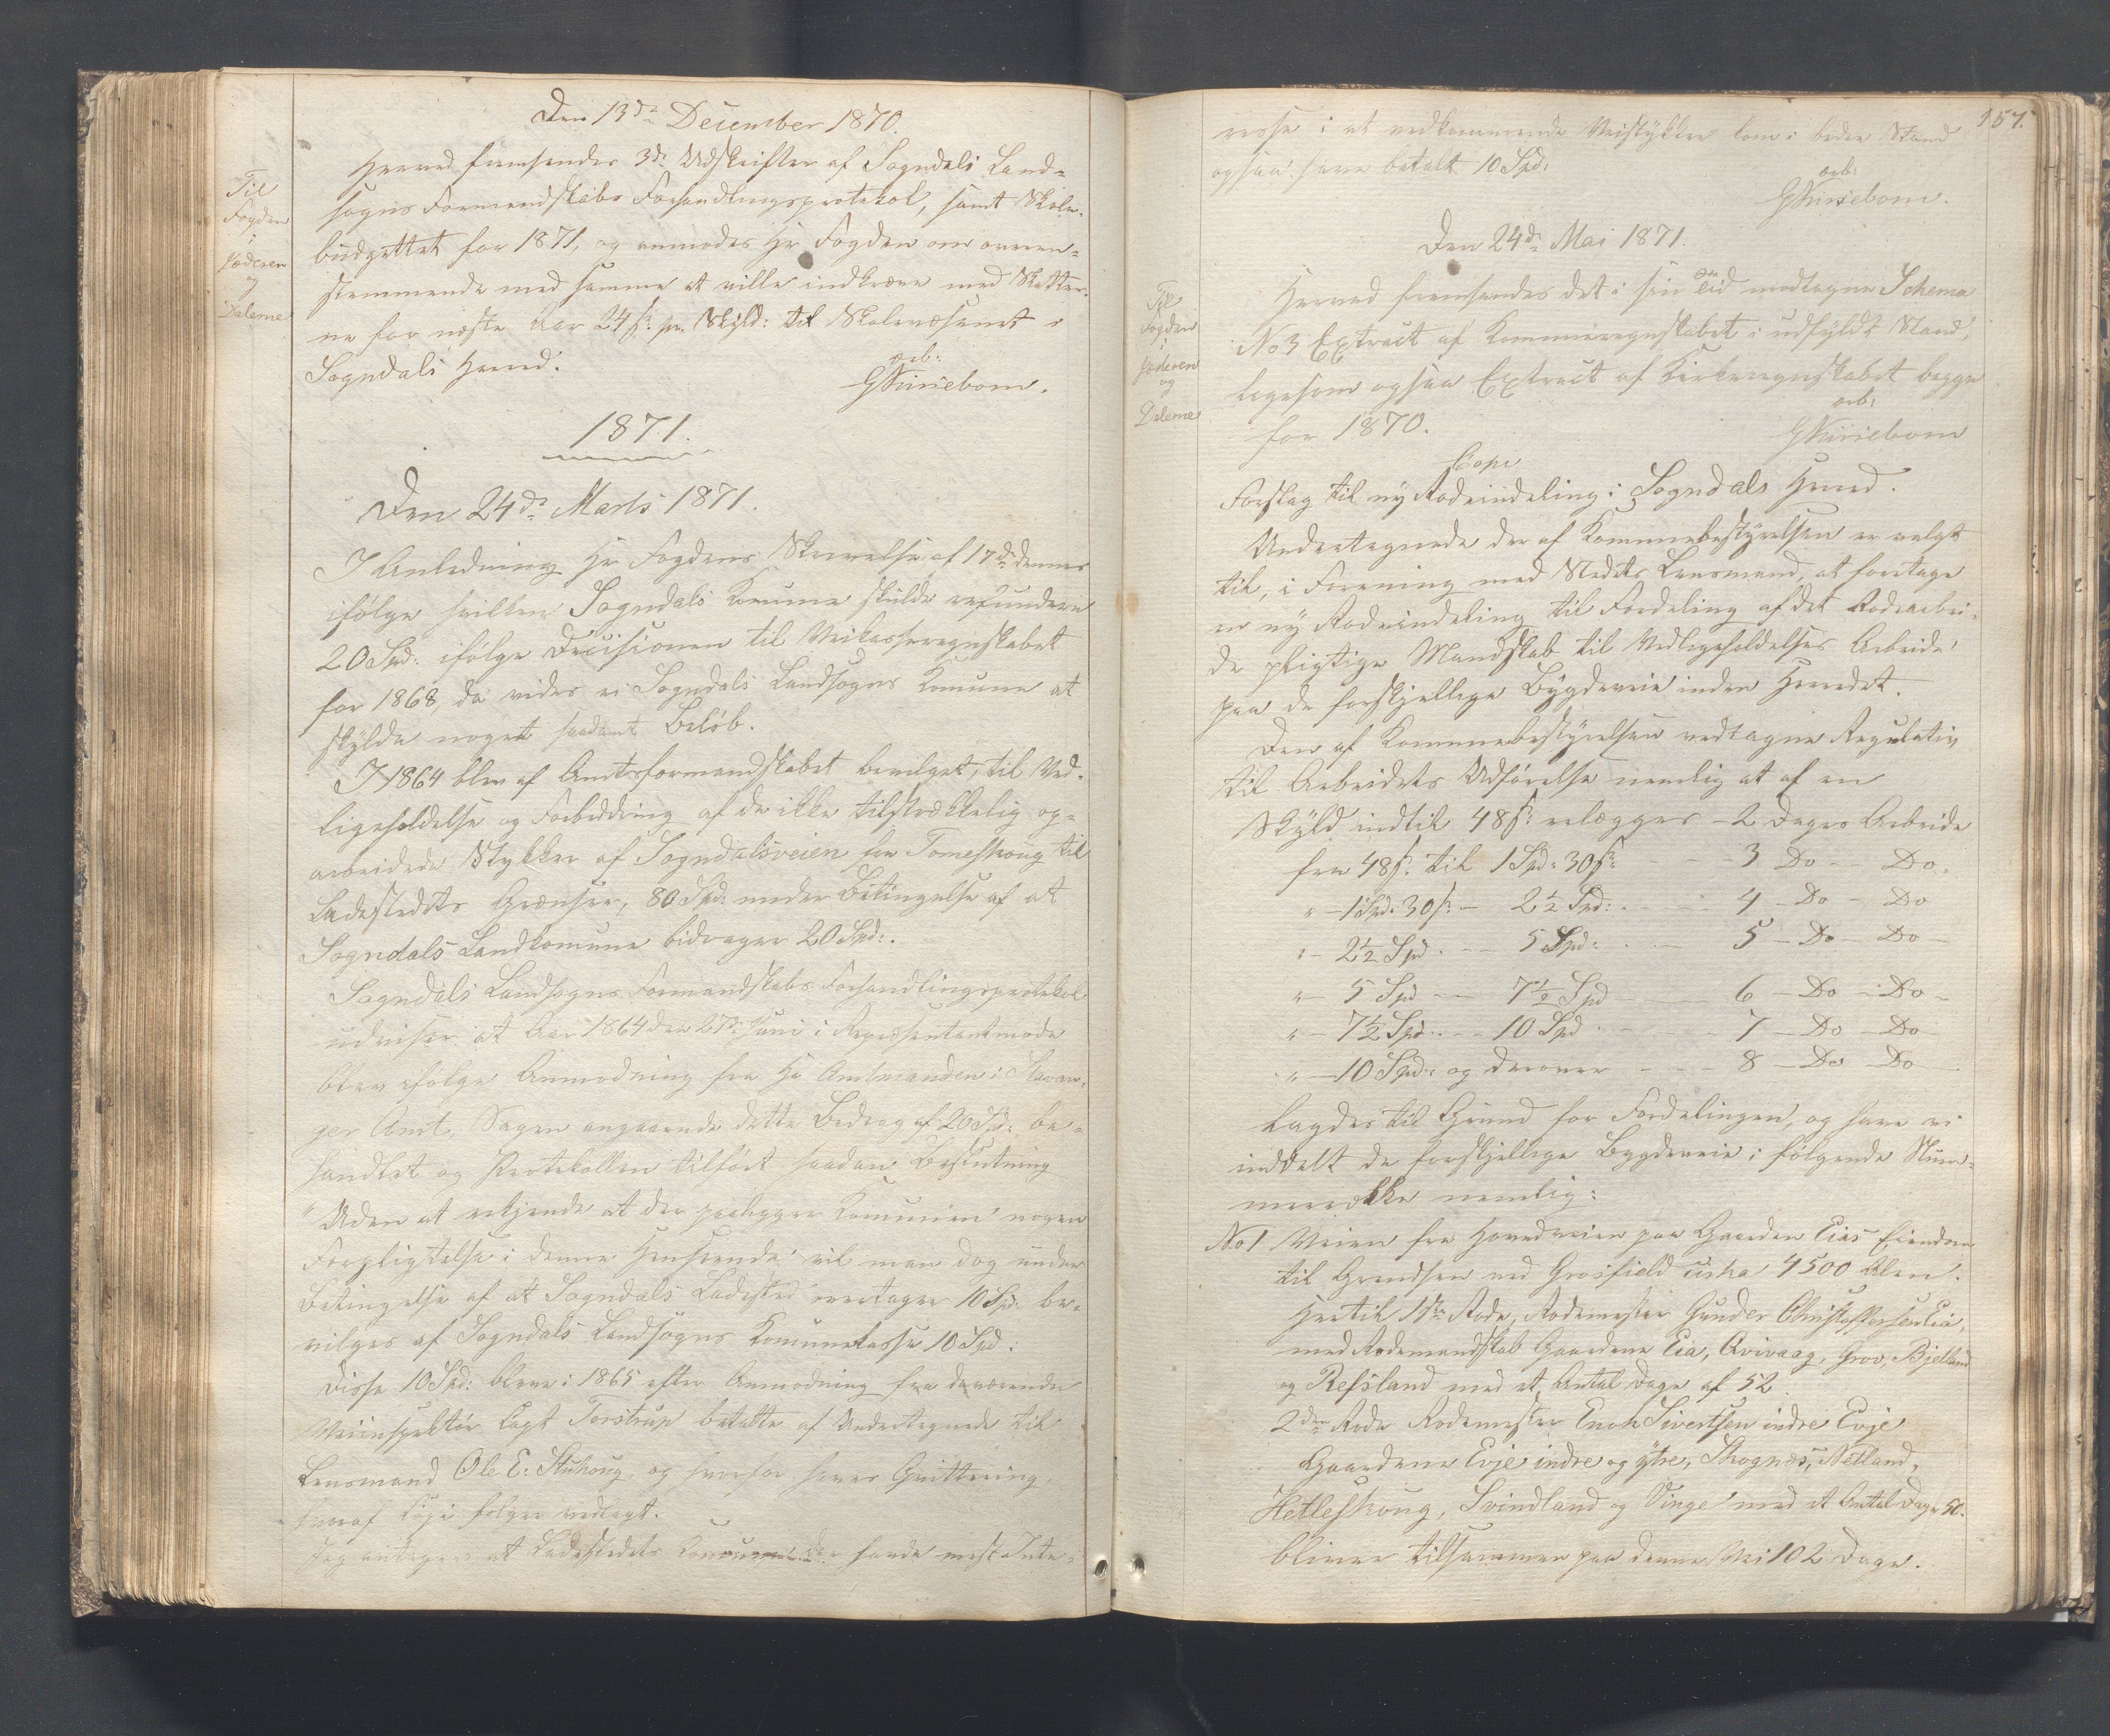 Den 13de December 1870.
Til
Fogden
i
Jæderen
og
Dalerne
Herved fremsendes 3de Udskrifter af Sogndals Land-
sogns Formandskabs Forhandlingsprotokol, samt Skole-
budgettet for 1871, og anmodes Hr Fogden om overen-
stemmende med samme at ville indkræve med Skatter-
ne for næste Aar 24 ß pr. Skyld: til Skolevæsenet i
Sogndals Herred.
ærb:
1871.
Den 24de Marts 1871.
I Anledning Hr Fogdens Skrivelse af 17de dennes
ifølge hvilken Sogndals Komune skulde refundere
20 Spd: ifølge Decisionen til Veikasseregnskabet
for 1868, da vides ei Sogndals Landsogns Komune at
skylde noget saadant Beløb.
I 1864 blev af Amtsformandskabet bevilget, til Ved-
ligeholdelse og Forbedring af de ikke tilstrækkelig op-
arbeidede Stykker af Sogndalsveien fra Tomeskoug til
Ladestedets Grænser, 80 Spd: under Betingelse af at
Sogndals Landkomune bidrager 20 Spd:.
Sogndals Landsogns Formandskabs Forhandlingsprotokol
udviser at Aar 1864 den 27de Juni i Repræsentantmøde
blev ifølge Anmodning fra Hr Amtmanden i Stavan-
ger Amt, Sagen angaaende dette Bidrag af 20 Spd: be-
handlet og Protokollen tilført saadan Beslutning
"Uden at erkjende at der paaligger Komunen nogen
Forpligtelse i denne Henseende vil man dog under
Betingelse af at Sogndals Ladested overtager 10 Spd: be-
vilges af Sogndals Landsogns Komunekasse 10 Spd:
Disse 10 Spd: bleve i 1865 efter Anmodning fra daværende
Veiinspektør Capt Torstrup betalte af Undertegnede til
Lensmand Ole E. og hvorfor haves Qvittering,
hvoraf Copi følger vedlagt.
Jeg antager at Ladestedets havde mest Inte-
157.
resse i at vedkommende Veistykker kom i bedre Stand
ogsaa have betalt 10 Spd:
ærb:
Den 24de Mai 1871.
Til
Fogden
i
Jæderen
og
Dalerne
Herved fremsendes det i sin Tid modtagne Schema
No 3 Extract af Komuneregnskabet i udfyldt Stand,
ligesom ogsaa Extract af Kirkeregnskabet begge
for 1870.
ærb:
Copi
Forslag til ny Rodeindeling i Sogndals Herred.
Undertegnede der af Kommunebestyrelsen er valgt
til, i Forening med Stedets Lensmand, at foretage
en ny Rodeindeling til Fordeling af det Rodearbei-
de pligtige Mandskab til Vedligeholdelses Arbeide
paa de forskjellige Bygdeveie inden Herredet.
Den af Kommunebestyrelsen vedtagne Regulativ
til Arbeidets Udførelse nemlig at af en
Skyld indtil 48 ß: erlægges - 2 Dages Arbeide
fra 48 ß. til 1 Spd: 30 ß: - - 3 Do - Do.
" - 1 Spd. 30 ß. - 2½ Spd: - - 4 - Do - Do
" - 2½ Spd. - - 5 Spd: - - 5 - Do - Do -
" - 5 Spd - - 7½ Spd - - 6 - Do - Do -
" - 7½ Spd. - - 10 Spd - - 7 - Do - Do
" - 10 Spd: og derover - - 8 - Do - Do
lagdes til Grund for Fordelingen, og have vi
inddelt de forskjellige Bygdeveie i følgende Num-
merrække nemlig:
No 1 Veien fra Hovedveien paa Gaarden Eias Eiendom
til Grændsen ved Grosfield cirka 4500 Alen.
Hertil 1ste Rode, Rodemester Gunder Christoffersen Eia,
med Rodemandskab Gaardene Eia, Qvivaag, Grov, Bjelland
og Refsland med et Antal Dage af 52.
2den Rode Rodemester Enoh Sivertsen indre Evje
Gaardene Evje indre og ytre, Skognæs, Netland,
Hetleskoug, Svindland og Vinge med et Antal Dage 50.
bliver tilsammen paa denne Vei 102 Dage.